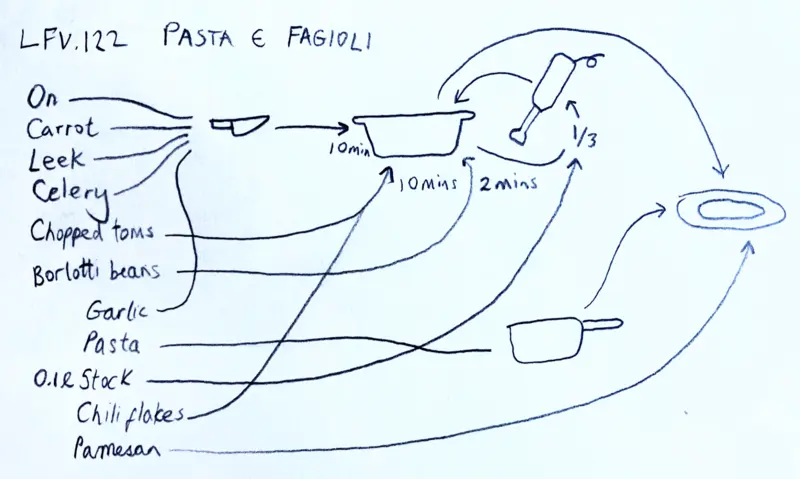 LFV.122 PASTA E FAGIOLI
On
Carrot
Leek
Celery
Chopped toms
Borlotti beans
Garlic
Pasta
0.1l Stock
Chili flakes
Parmesan
10min
10mins
2 mins
1/3